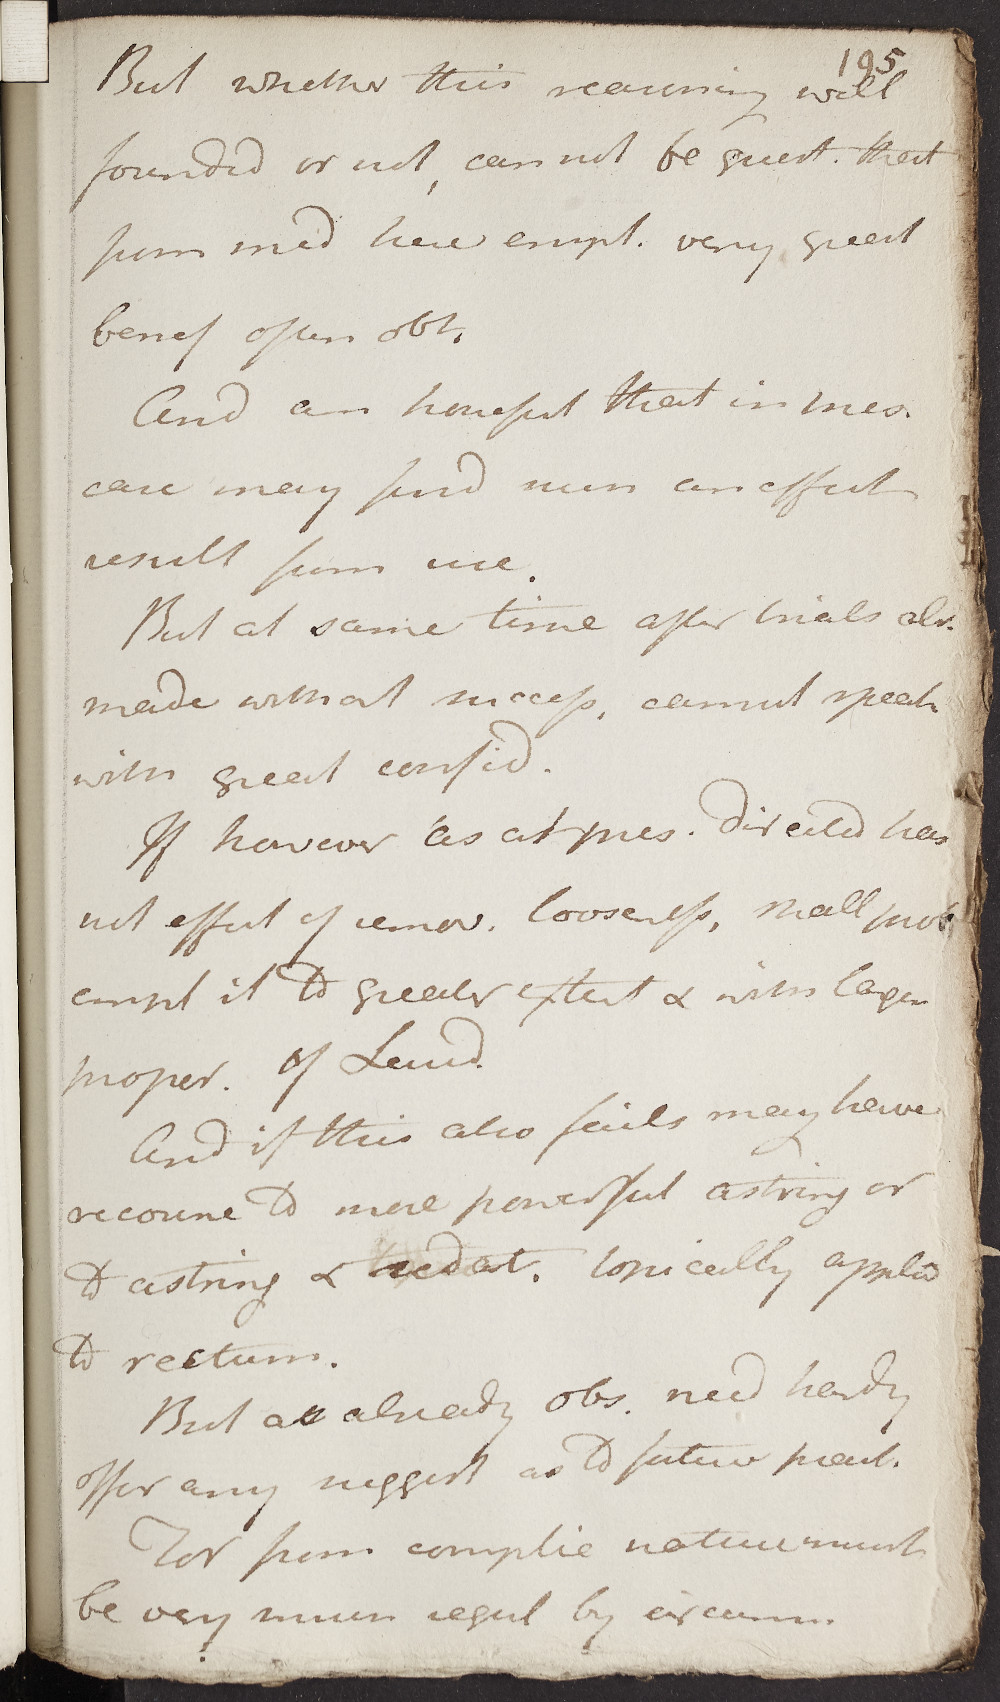 195
But whether this reasoning well
founded or not, cannot be quest. that
from med here empl. very great
benef often obt.
And am hopeful that in pres.
case may find such an effect
result from use.
But at same time after trials alr.
made without success, cannot speak
with great confid.
If however as at pres. directed has
not effect of remov. looseness, shall prob
empl it to greater extent & with larger
propor. of Laud.
And if this also fails may have
recourse to more powerful astring or
to astring & sedat. topically applied
to rectum.
But as already obs. need hardly
offer any suggest as to future pract.
For from complic nature must
be very much regul by circum.